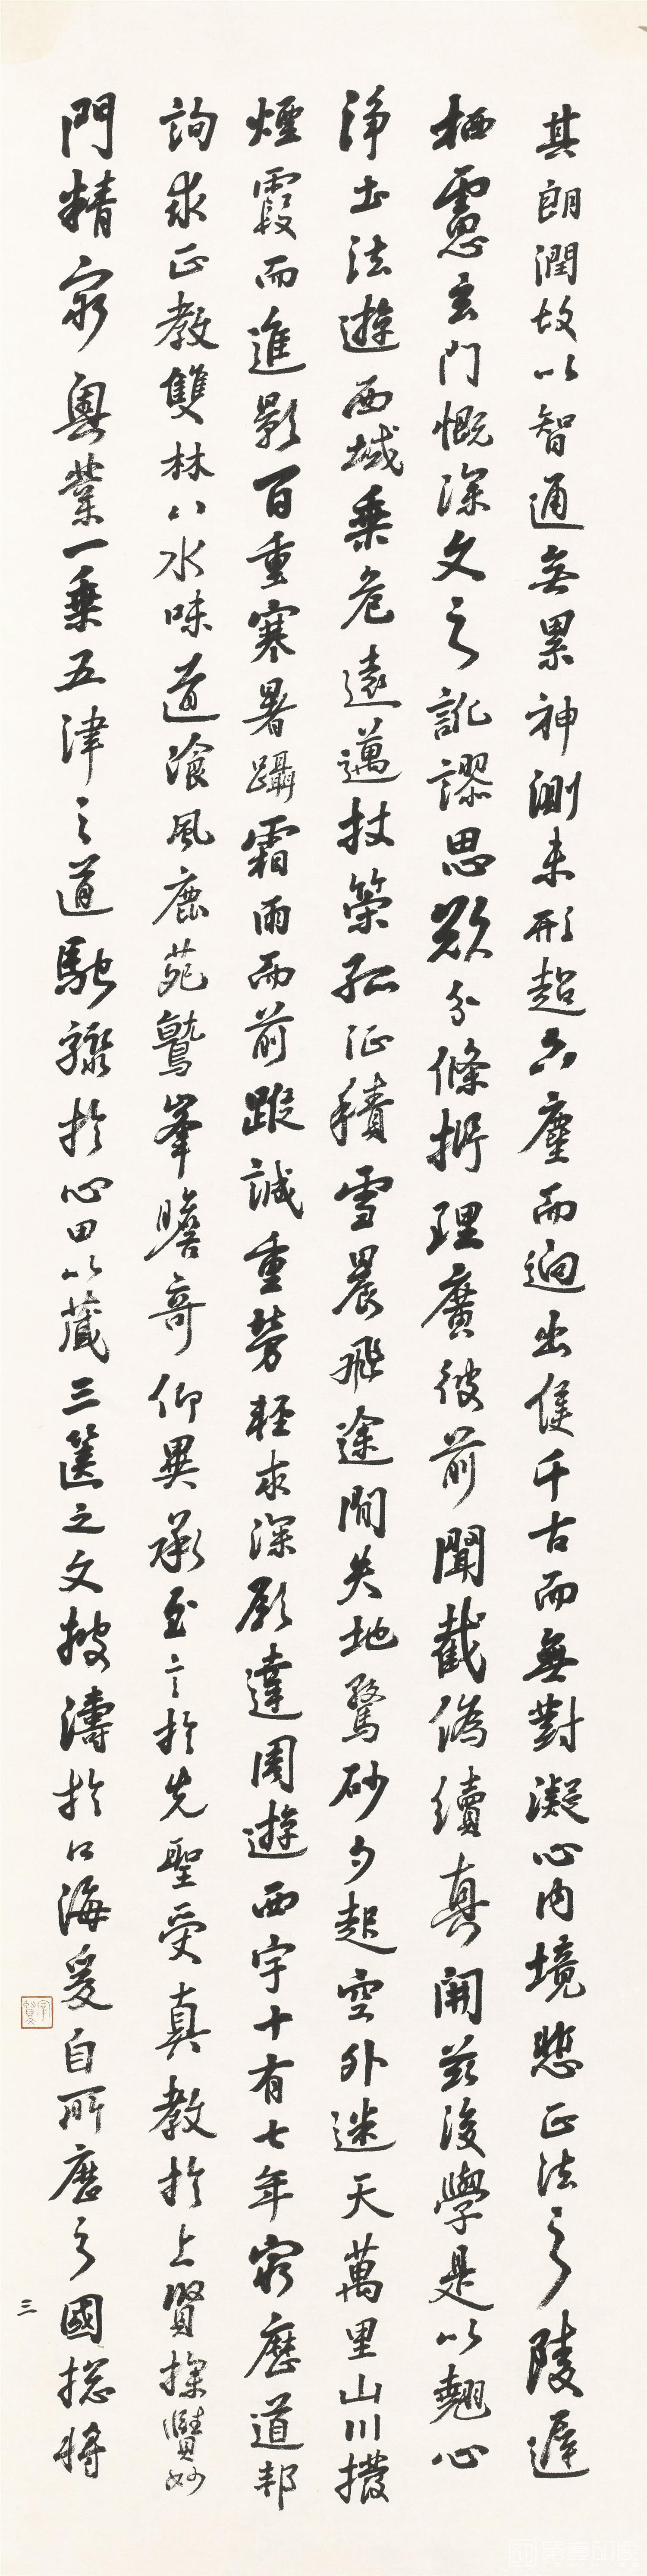 其朗潤故以智通無累神測未形超六塵而迥出隻千古而無對凝心內境悲正法之陵遲
栖慮玄門慨深文之訛謬思欲分條析理廣彼前聞截偽續真開茲後學是以翹心
淨土法遊西域乘危遠邁杖策孤征積雪晨飛途間失地驚砂夕起空外迷天萬里山川撥
煙霞而進影百重寒暑躡霜雨而前蹤誠重勞輕求深願達周遊西宇十有七年窮歷道邦
詢求正教雙林八水味道湌風鹿苑鷲峯瞻奇仰異承至言於先聖受真教於上賢探賾妙
門精窮奧業一乘五津之道馳驟於心田八藏三篋之文披濤於口海爰自所歷之國揔將
三